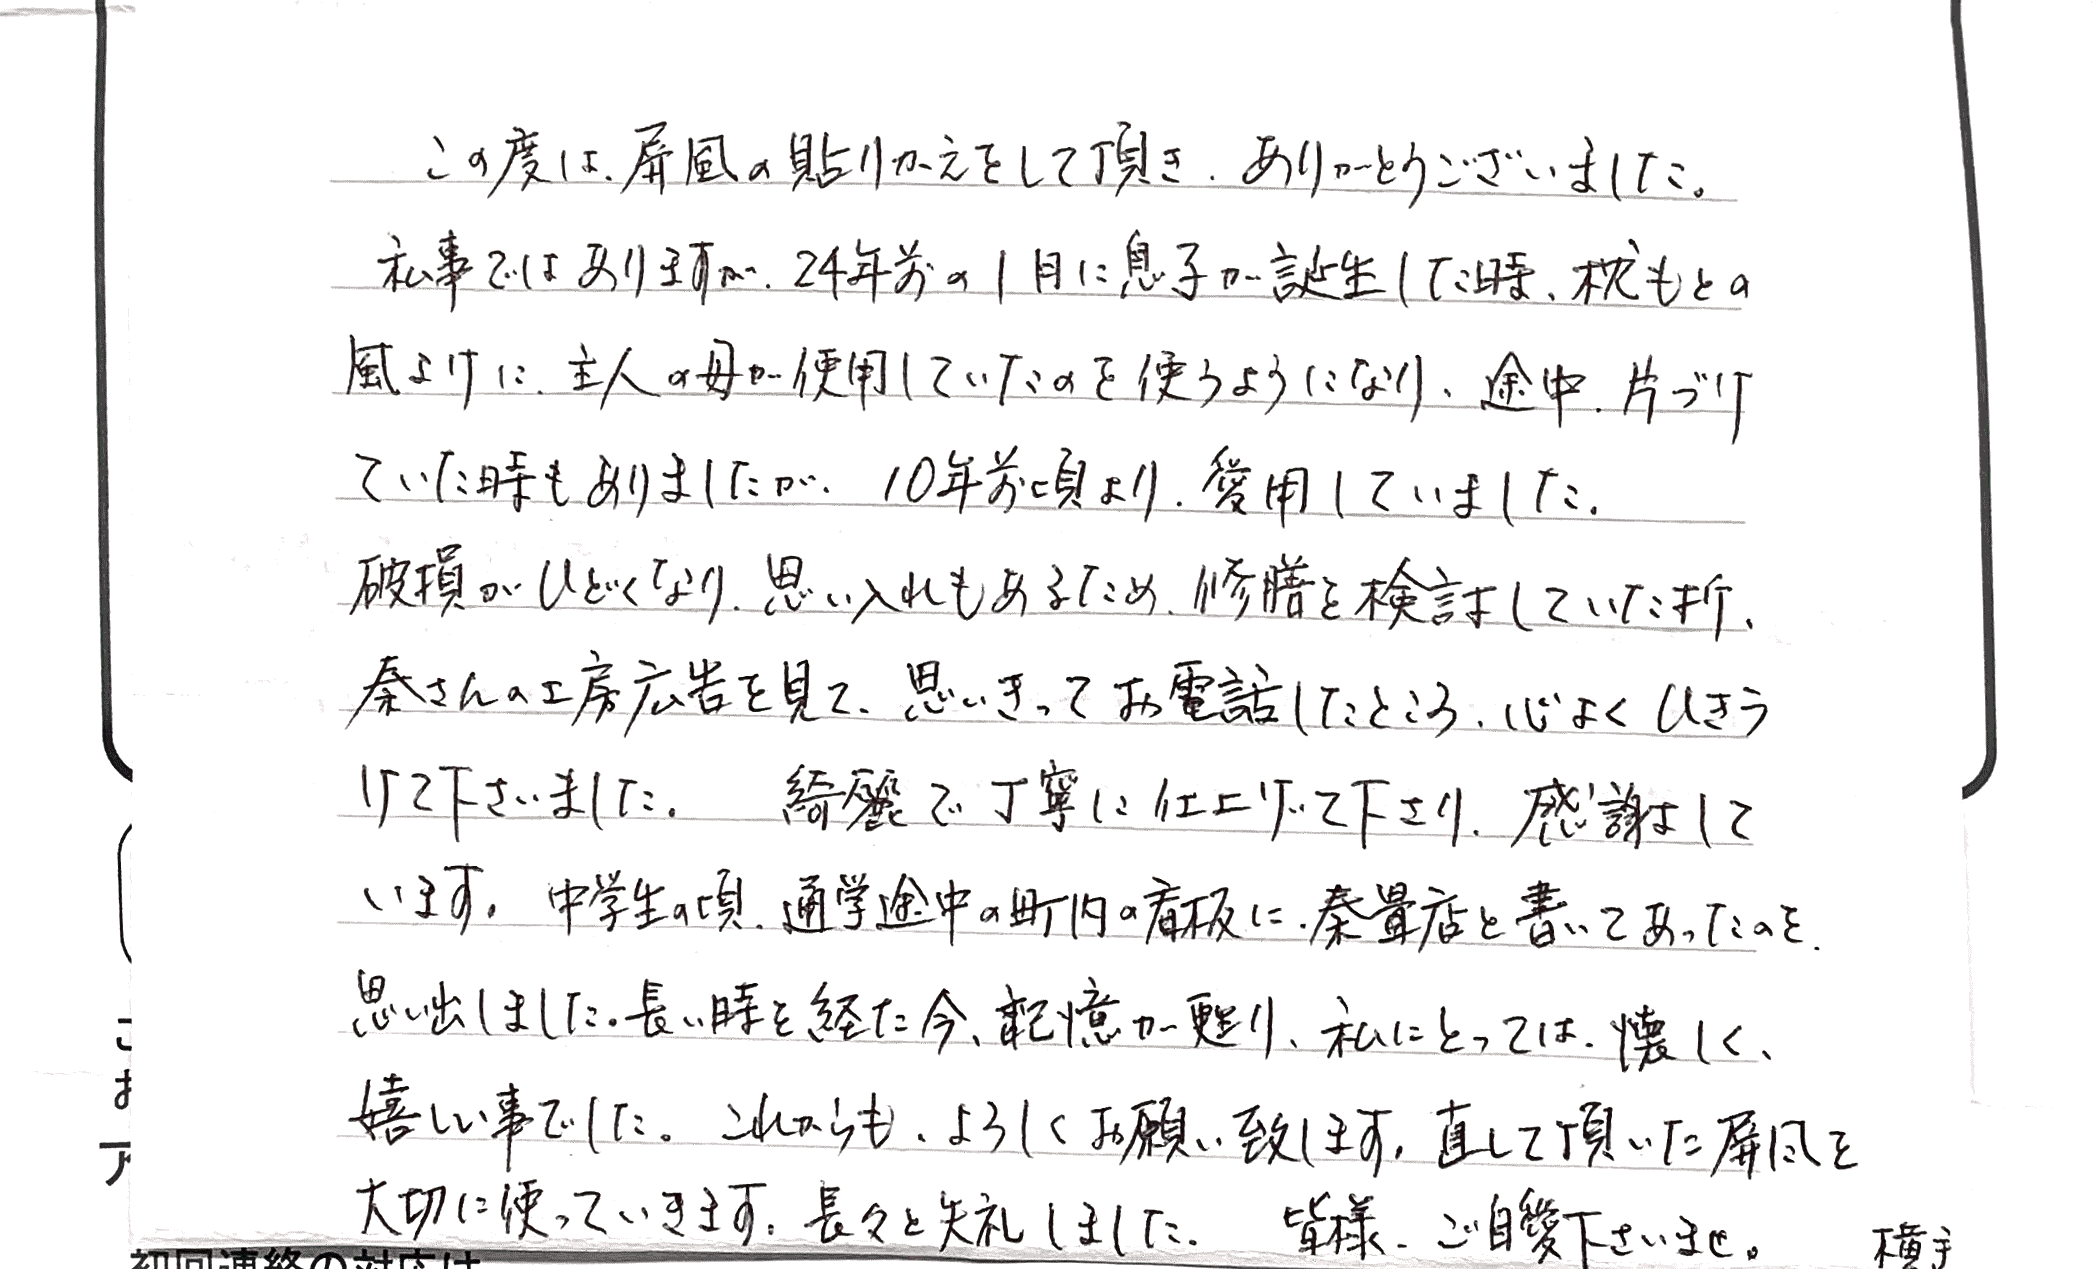 この度は、屏風の貼りかえをして頂き、ありがとうございました。
私事ではありますが、24年前の1月に息子が誕生した時、枕もとの
風よけに、主人の母が使用していたのを使うようになり、途中、片づけ
ていた時もありましたが、10年前頃より、愛用していました。
破損がひどくなり、思い入れもあるため、修膳を検討していた折、
秦さんの工房広告を見て、思いきってお電話したところ、心よくひきう
けて下さいました。 綺麗で丁寧に仕上げて下さり、感謝して
います。中学生の頃、通学途中の町内の看板に、秦畳店と書いてあったのを、
思い出しました。長い時を経た今、記憶が甦り、私にとっては、懐しく、
嬉しい事でした。これからも、よろしくお願い致します。直して頂いた屏風を
大切に使っていきます。長々と失礼しました。 皆様、ご自愛下さいませ。 横手
こ
お
ア
初回連絡の対応は